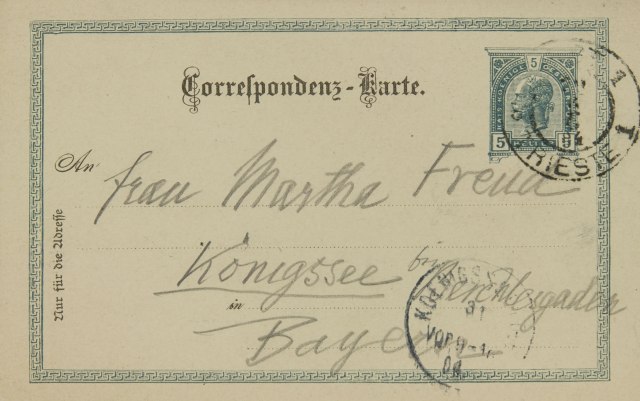 Correspondenz-Karte.
5
5 HELLER 5
TRIESTE 1
1
An Frau Martha Freud
Nur für die Adresse
Königssee bei
in Berchtesgaden
Bayern
KOENIGSSEE
31
VOR.9-10
04